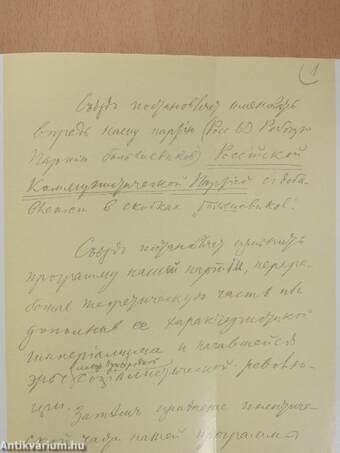 1
Съезд постановляет именовать
впредь нашу партию (Росс.
Партия большевиков) Российской
Коммунистической Партией с доба
влением в скобках „большевиков“.
Съезд постановляет изменить
программу нашей партии, перера
ботав теоретическую часть или
дополнив ее характеристикой
империализма и начавшейся
международной
эры социалистической револю
ции. Затем изменение политиче
ской части нашей программы
antikvarium.hu